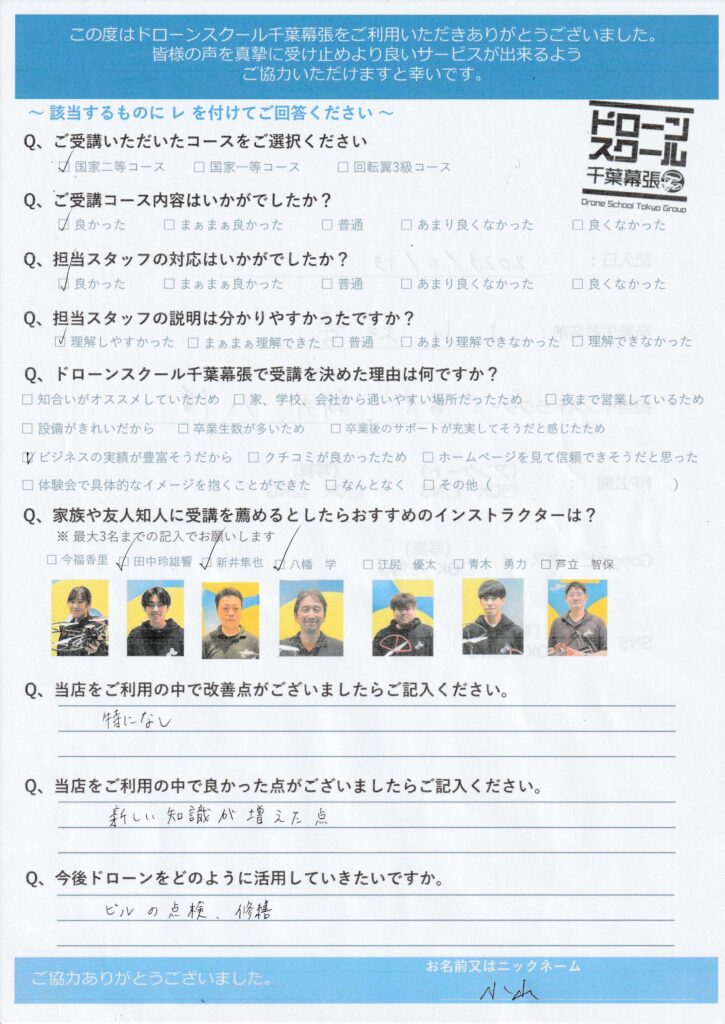 この度はドローンスクール千葉幕張をご利用いただきありがとうございました。
皆様の声を真摯に受け止めより良いサービスが出来るよう
ご協力いただけますと幸いです。
～ 該当するものに レ を付けてご回答ください ～
ドローン
スクール
千葉幕張
Drone School Tokyo Group
Q、ご受講いただいたコースをご選択ください
☑ 国家二等コース □ 国家一等コース □ 回転翼3級コース
Q、ご受講コース内容はいかがでしたか？
☑ 良かった □ まぁまぁ良かった □ 普通 □ あまり良くなかった □ 良くなかった
Q、担当スタッフの対応はいかがでしたか？
☑ 良かった □ まぁまぁ良かった □ 普通 □ あまり良くなかった □ 良くなかった
Q、担当スタッフの説明は分かりやすかったですか？
☑ 理解しやすかった □ まぁまぁ理解できた □ 普通 □ あまり理解できなかった □ 理解できなかった
Q、ドローンスクール千葉幕張で受講を決めた理由は何ですか？
□ 知合いがオススメしていたため □ 家、学校、会社から通いやすい場所だったため □ 夜まで営業しているため
□ 設備がきれいだから □ 卒業生数が多いため □ 卒業後のサポートが充実してそうだと感じたため
☑ ビジネスの実績が豊富そうだから □ クチコミが良かったため □ ホームページを見て信頼できそうだと思った
□ 体験会で具体的なイメージを抱くことができた □ なんとなく □ その他（ ）
Q、家族や友人知人に受講を薦めるとしたらおすすめのインストラクターは？
※ 最大3名までの記入でお願いします
□ 今福香里 ☑ 田中玲雄響 ☑ 新井隼也 ☑ 八幡 学 □ 江尻 優太 □ 青木 勇力 □ 芦立 智保
Q、当店をご利用の中で改善点がございましたらご記入ください。
特になし
Q、当店をご利用の中で良かった点がございましたらご記入ください。
新しい知識が増えた点
Q、今後ドローンをどのように活用していきたいですか。
ビルの点検、修繕
ご協力ありがとうございました。
お名前又はニックネーム